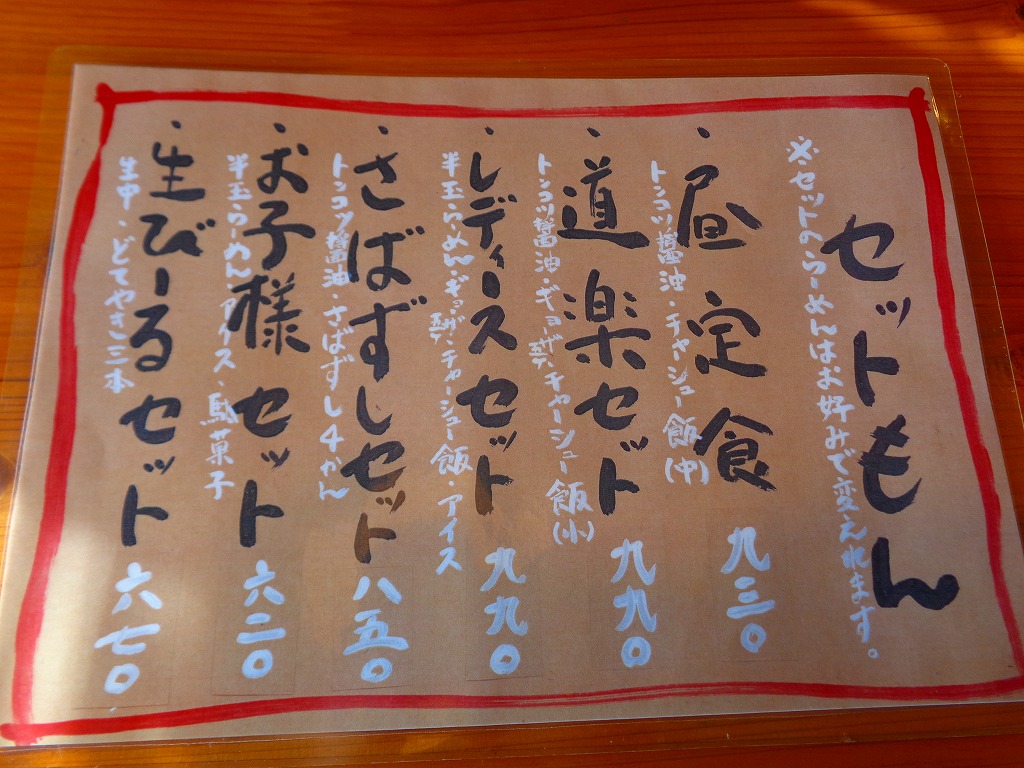 セットもん
※・セットのらーめんはお好みで変えれます。
・昼定食 九三〇
トンコツ醤油・チャーシュー飯(中)
・道楽セット 九九〇
トンコツ醤油・ギョーザ5コ・チャーシュー飯(小)
・レディースセット 九九〇
半玉らーめん・ギョーザ3コ・チャーシュー飯・アイス
・さばずしセット 八五〇
トンコツ醤油・さばずし4かん
・お子様セット 六二〇
半玉らーめん・アイス・駄菓子
・生びーるセット 六七〇
生中・どてやき三本